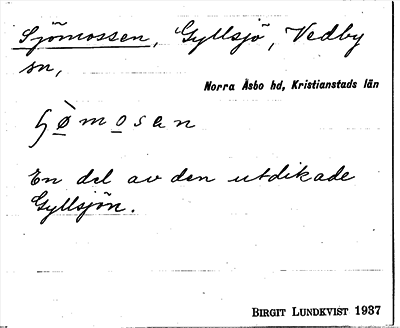 Sjömossen, Gyllsjö, Vedby
sn,
Norra Åsbo hd, Kristianstads län
ɧø̀mosen
En del av den utdikade
Gyllsjön.
BIRGIT LUNDKVIST 1937